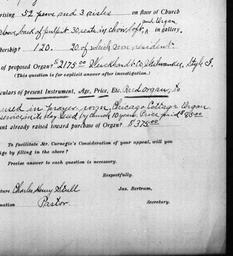 52 pews and 3 aisles on floor of Church
above back of pulpit 30 seats in choir loft, and Organ in gallery.
120. 20 of which non resident
of proposed Organ? $2175.00 Style I.
(This question is for explicit answer after investigation.)
culars of present Instrument, Age, Price, Etc. Reed organ, Is
used in prayer room, Chicago Cottage Organ
used by church 10 years. Price paid $85.00
nt already raised toward purchase of Organ? $375.00
To facilitate Mr. Carnegie's Consideration of your appeal, will you
ge by filling in the above?
Precise answer to each question is necessary.
Respectfully,
Jas. Bertram,
ature Charles Henry
Secretary.
nation Pastor